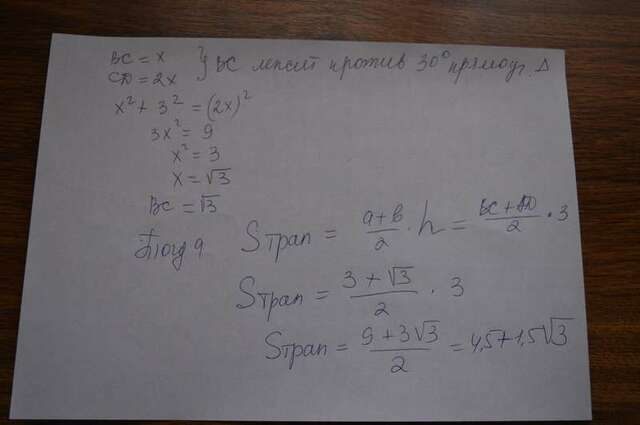 BC = x } BC лежит против 30° прямоуг. Δ
CD = 2x
x² + 3² = (2x)²
3x² = 9
x² = 3
x = √3
BC = √3
Тогда Sтрап = (a+b)/2 · h = (BC+AD)/2 · 3
Sтрап = (3 + √3)/2 · 3
Sтрап = (9 + 3√3)/2 = 4,5 + 1,5√3